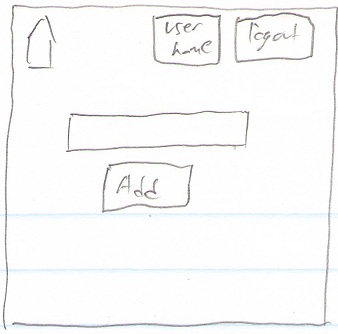 user
home
logout
Add